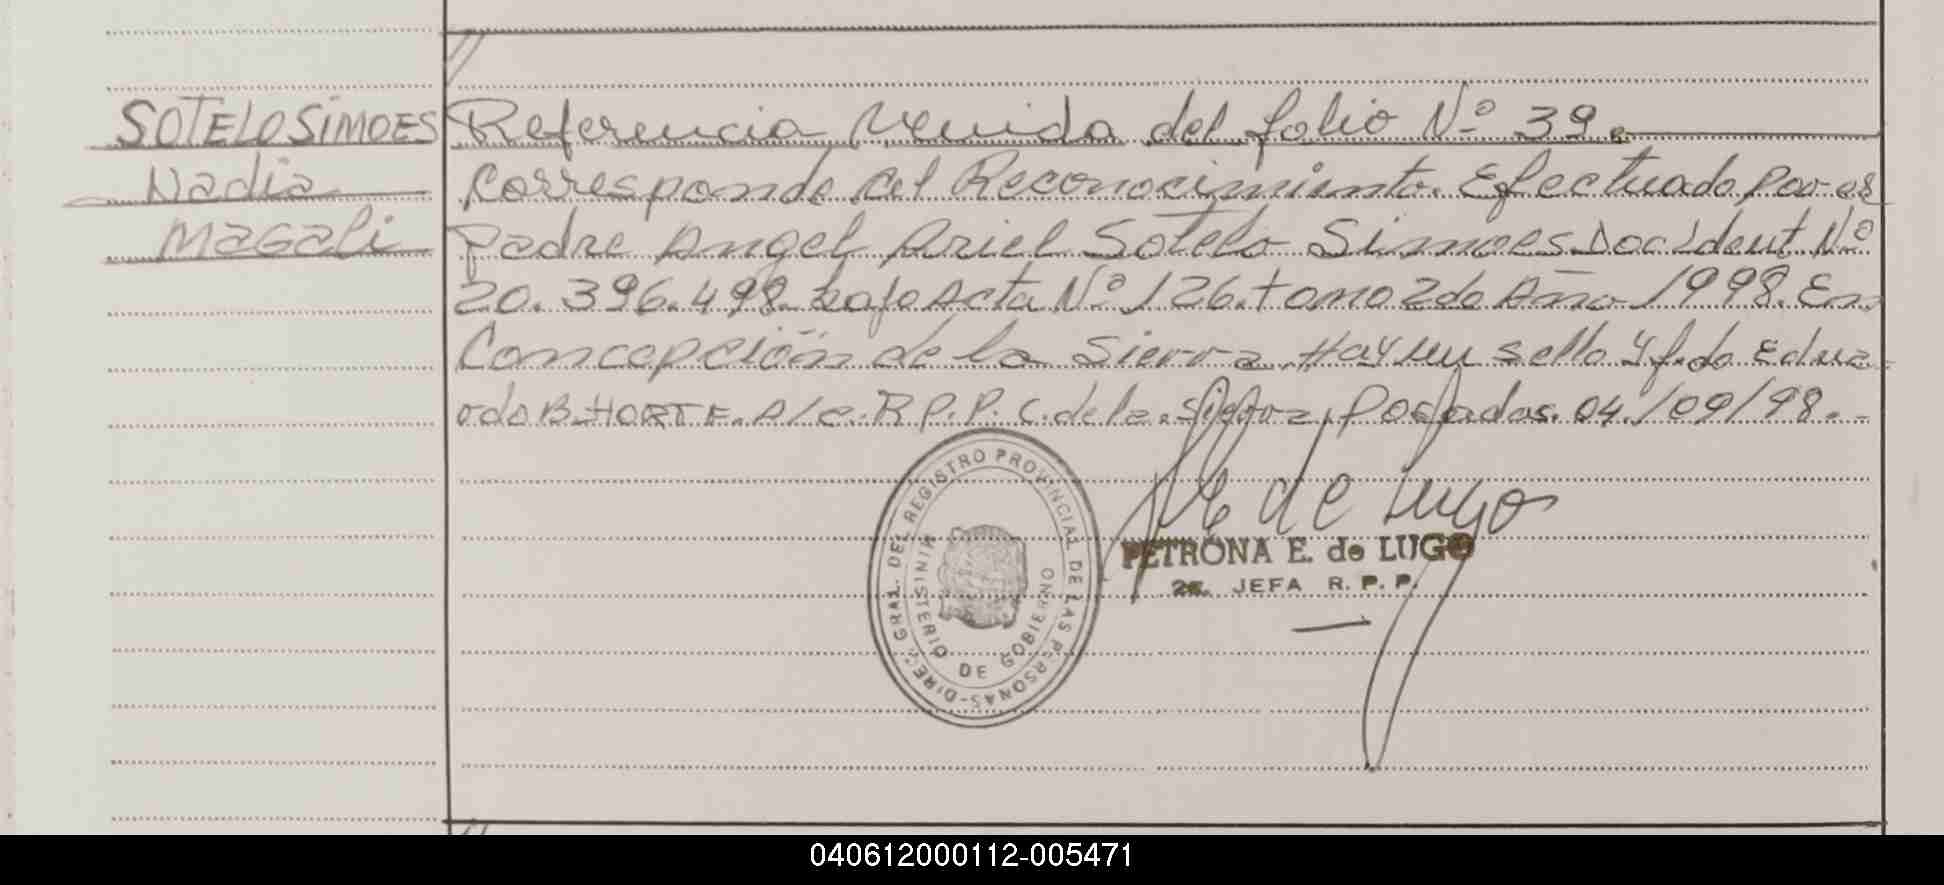 SOTELO SIMOES
Nadia
MAGALI
Referencia Venida del folio Nº 39.
Corresponde al Reconocimiento. Efectuado por el
Padre Angel Ariel Sotelo Simoes Doc. Ident. Nº
20.396.498. bajo Acta Nº 126. tomo 2do Año 1998. En
Concepción de la Sierra. Hay un sello y f.do Edua
rdo B. HORTE. A/c. R.P.P. C. de la Sierra, Posadas. 04/09/98.-
DIREC. GRAL. DEL REGISTRO PROVINCIAL DE LAS PERSONAS-
MINISTERIO DE GOBIERNO
de Lugo
PETRONA E. de LUGO
JEFA R. P. P.
040612000112-005471